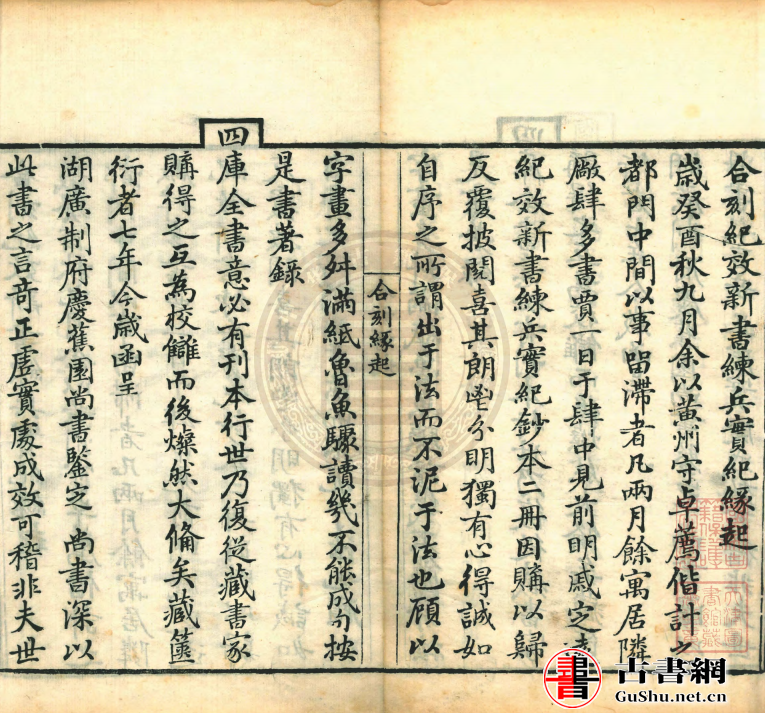 合刻紀效新書練兵實紀緣起
歲癸酉秋九月余以黃州守卓薦偕計之
都門中間以事畱滯者凡兩月餘寓居隣
廠肆多書賈一日于肆中見前明戚定遠
紀效新書練兵實紀鈔本二冊因購以歸
反覆披閱喜其朗鬯分明獨有心得誠如
自序之所謂出于法而不泥于法也顧以
合刻緣起
字畫多舛滿紙魯魚驟讀幾不能成句按
是書著錄
四庫全書意必有刊本行世乃復從藏書家
購得之互為校讎而後燦然大備矣藏篋
衍者七年今歲函呈
湖廣制府慶蕉園尚書鑒定 尚書深以
此書之言奇正虛實處成效可稽非夫世
書 古書網
GuShu.net.cn